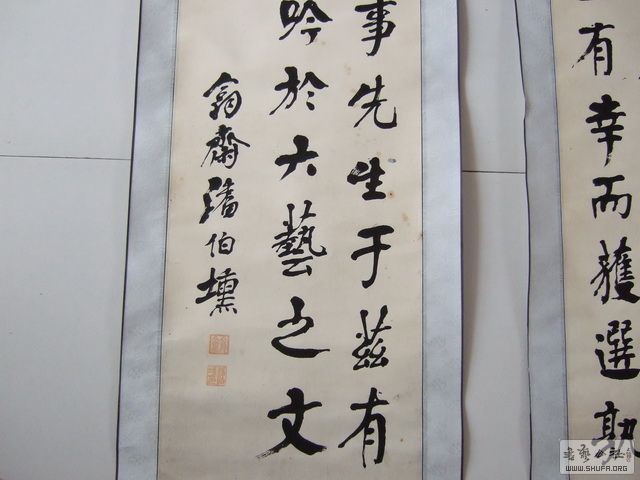 有幸而獲選孰
事先生于茲有
吟於六藝之文
齋潘伯壎
書藝公社
WWW.SHUFA.ORG